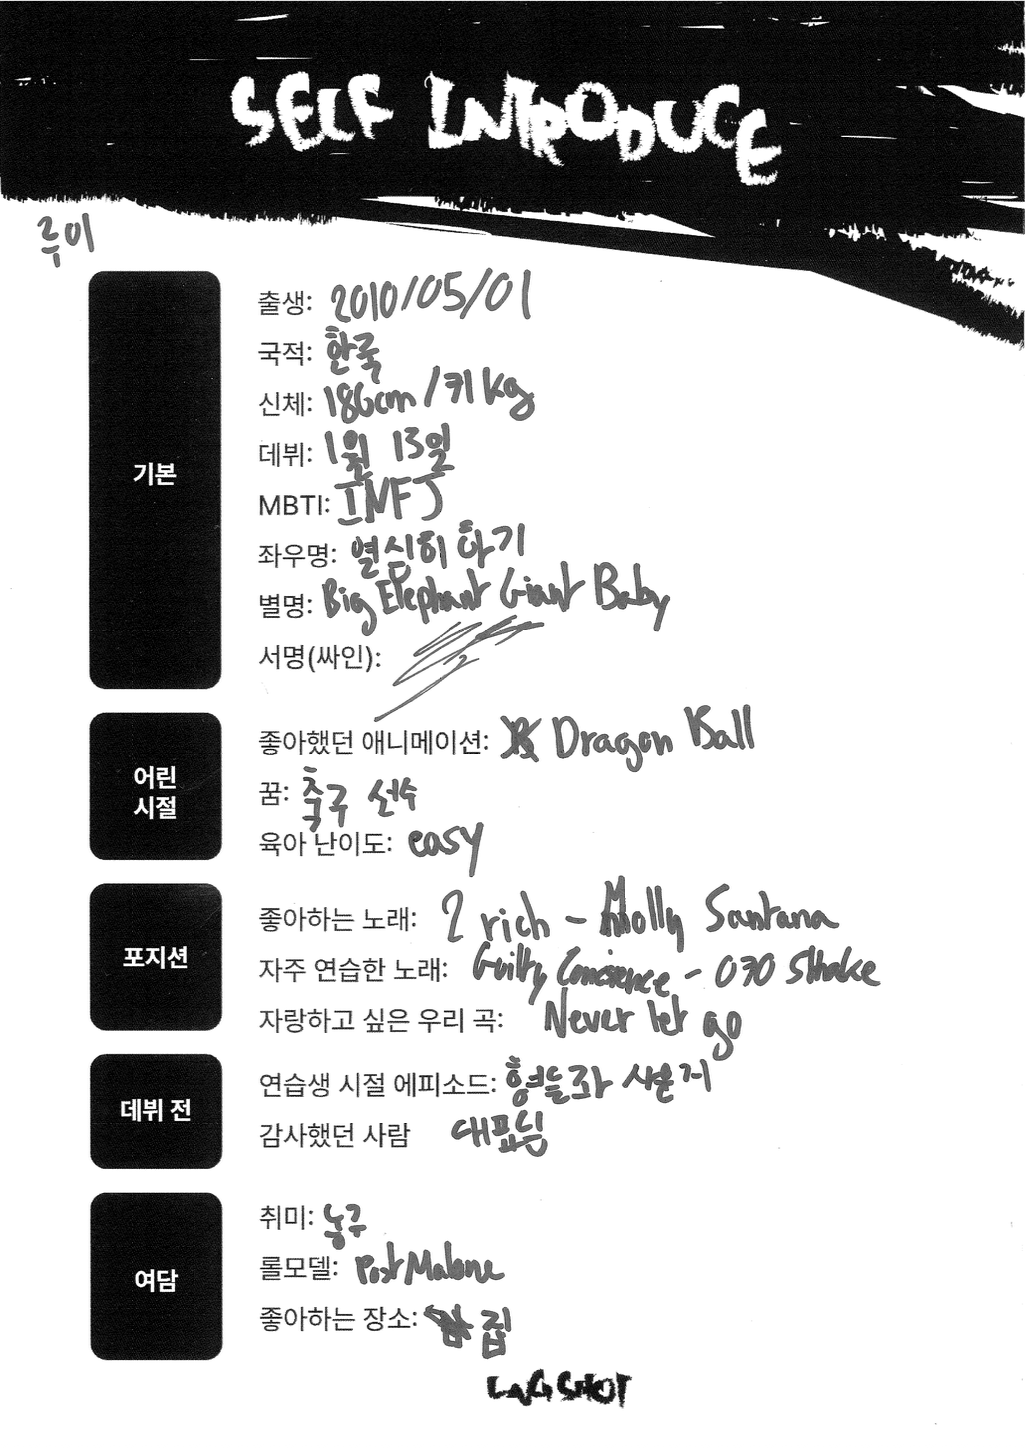 SELF INTRODUCE
루이
기본
출생: 2010/05/01
국적: 한국
신체: 186cm / 키 kg
데뷔: 1월 13일
MBTI: INFJ
좌우명: 열심히 하기
별명: Big Elephant Giant Baby
서명(싸인):
어린
시절
좋아했던 애니메이션: Dragon Ball
꿈: 축구 선수
육아 난이도: easy
포지션
좋아하는 노래: 2 rich - Molly Santana
자주 연습한 노래: Guilty Conscience - 070 Shake
자랑하고 싶은 우리 곡: Never let go
데뷔 전
연습생 시절 에피소드: 형들과 싸운거
감사했던 사람 대표님
여담
취미: 농구
롤모델: Post Malone
좋아하는 장소: 집
LNGSHOT